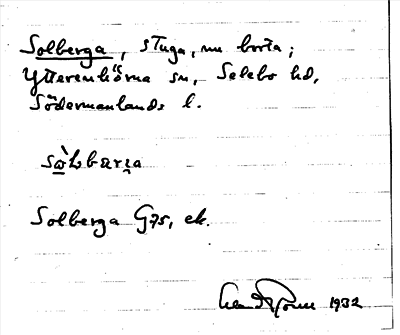 Solberga, stuga, nu borta;
Ytterenhörna sn, Selebo hd,
Södermanlands l.
Solberga G75, ek.
1932